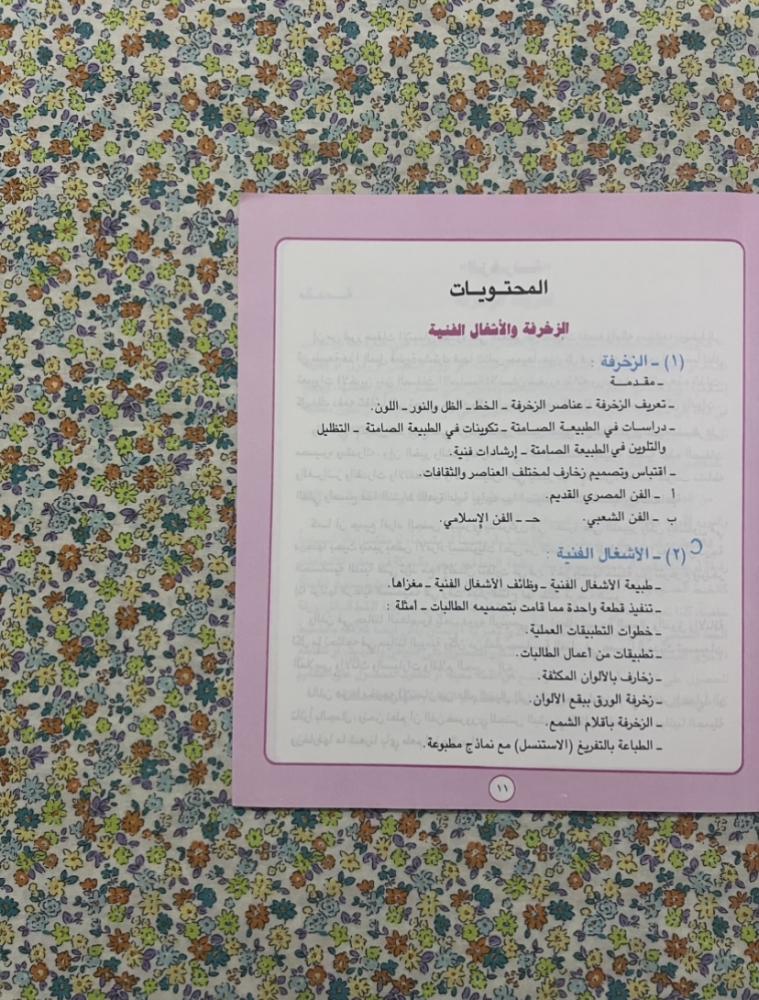 المحتويات
الزخرفة والأشغال الفنية
(١) ـ الزخرفة :
ـ مقدمة
ـ تعريف الزخرفة ـ عناصر الزخرفة ـ الخط ـ الظل والنور ـ اللون.
ـ دراسات في الطبيعة الصامتة ـ تكوينات في الطبيعة الصامتة ـ التظليل
والتلوين في الطبيعة الصامتة ـ إرشادات فنية.
ـ اقتباس وتصميم زخارف لمختلف العناصر والثقافات.
أ ـ الفن المصري القديم.
ب ـ الفن الشعبي. حـ ـ الفن الإسلامي.
(٢) ـ الأشغال الفنية :
ـ طبيعة الأشغال الفنية ـ وظائف الأشغال الفنية ـ مغزاها.
ـ تنفيذ قطعة واحدة مما قامت بتصميمه الطالبات ـ أمثلة :
ـ خطوات التطبيقات العملية.
ـ تطبيقات من أعمال الطالبات.
ـ زخارف بالألوان المكثفة.
ـ زخرفة الورق ببقع الألوان.
ـ الزخرفة بأقلام الشمع.
ـ الطباعة بالتفريغ (الاستنسل) مع نماذج مطبوعة.
١١